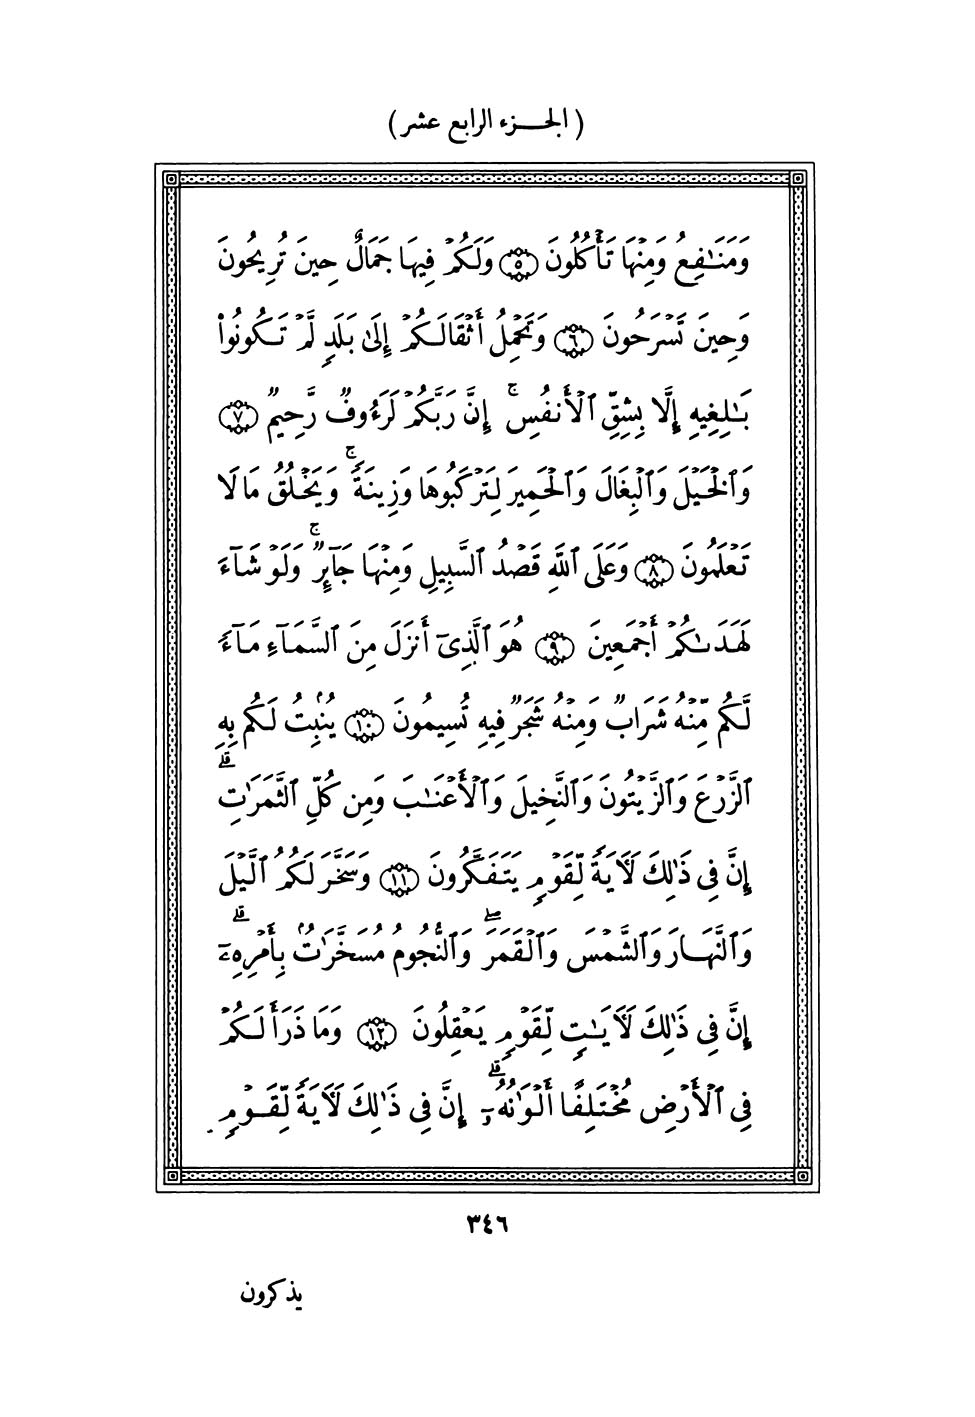 ( الجزء الرابع عشر )
وَمَنَـٰفِعُ وَمِنْهَا تَأْكُلُونَ ۝٥ وَلَكُمْ فِيهَا جَمَالٌ حِينَ تُرِيحُونَ
وَحِينَ تَسْرَحُونَ ۝٦ وَتَحْمِلُ أَثْقَالَكُمْ إِلَىٰ بَلَدٍ لَّمْ تَكُونُوا۟
بَـٰلِغِيهِ إِلَّا بِشِقِّ ٱلْأَنفُسِ ۚ إِنَّ رَبَّكُمْ لَرَءُوفٌ رَّحِيمٌ ۝٧
وَٱلْخَيْلَ وَٱلْبِغَالَ وَٱلْحَمِيرَ لِتَرْكَبُوهَا وَزِينَةً ۚ وَيَخْلُقُ مَا لَا
تَعْلَمُونَ ۝٨ وَعَلَى ٱللَّهِ قَصْدُ ٱلسَّبِيلِ وَمِنْهَا جَآئِرٌ ۚ وَلَوْ شَآءَ
لَهَدَىٰكُمْ أَجْمَعِينَ ۝٩ هُوَ ٱلَّذِىٓ أَنزَلَ مِنَ ٱلسَّمَآءِ مَآءً
لَّكُم مِّنْهُ شَرَابٌ وَمِنْهُ شَجَرٌ فِيهِ تُسِيمُونَ ۝١٠ يُنۢبِتُ لَكُم بِهِ
ٱلزَّرْعَ وَٱلزَّيْتُونَ وَٱلنَّخِيلَ وَٱلْأَعْنَـٰبَ وَمِن كُلِّ ٱلثَّمَرَٰتِ ۗ
إِنَّ فِى ذَٰلِكَ لَـَٔايَةً لِّقَوْمٍ يَتَفَكَّرُونَ ۝١١ وَسَخَّرَ لَكُمُ ٱلَّيْلَ
وَٱلنَّهَارَ وَٱلشَّمْسَ وَٱلْقَمَرَ ۖ وَٱلنُّجُومُ مُسَخَّرَٰتٌۢ بِأَمْرِهِۦٓ ۗ
إِنَّ فِى ذَٰلِكَ لَـَٔايَـٰتٍ لِّقَوْمٍ يَعْقِلُونَ ۝١٢ وَمَا ذَرَأَ لَكُمْ
فِى ٱلْأَرْضِ مُخْتَلِفًا أَلْوَٰنُهُۥٓ ۗ إِنَّ فِى ذَٰلِكَ لَـَٔايَةً لِّقَوْمٍ
٣٤٦
يذكرون